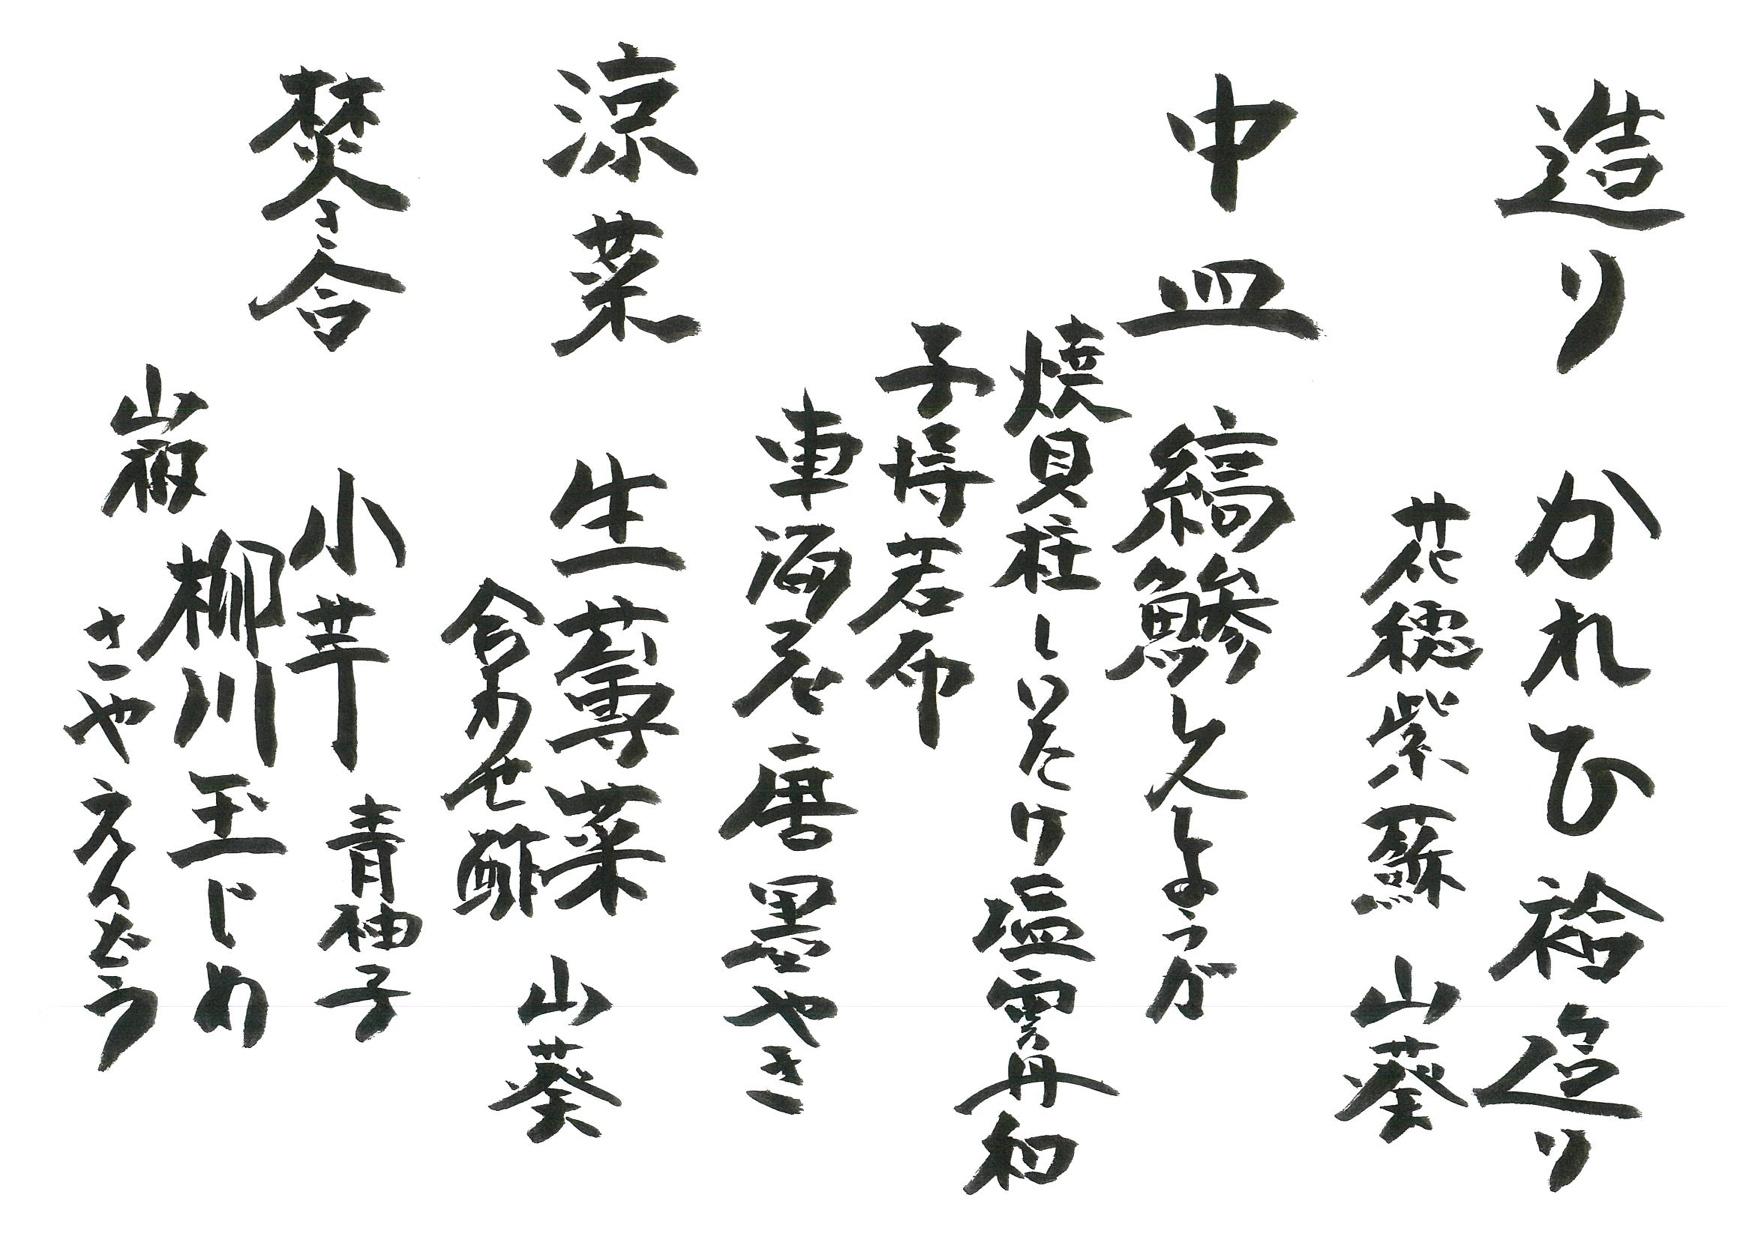 造り かれひ袷造り
花穂紫蘇 山葵
中皿 縞鯵しんしょうが
焼貝柱しいたけ塩雲丹和
子持若布
車海老唐墨やき
涼菜 生蓴菜 山葵
合わせ酢
焚き合
小芋 青柚子
柳川玉じめ
山椒
さやえんどう